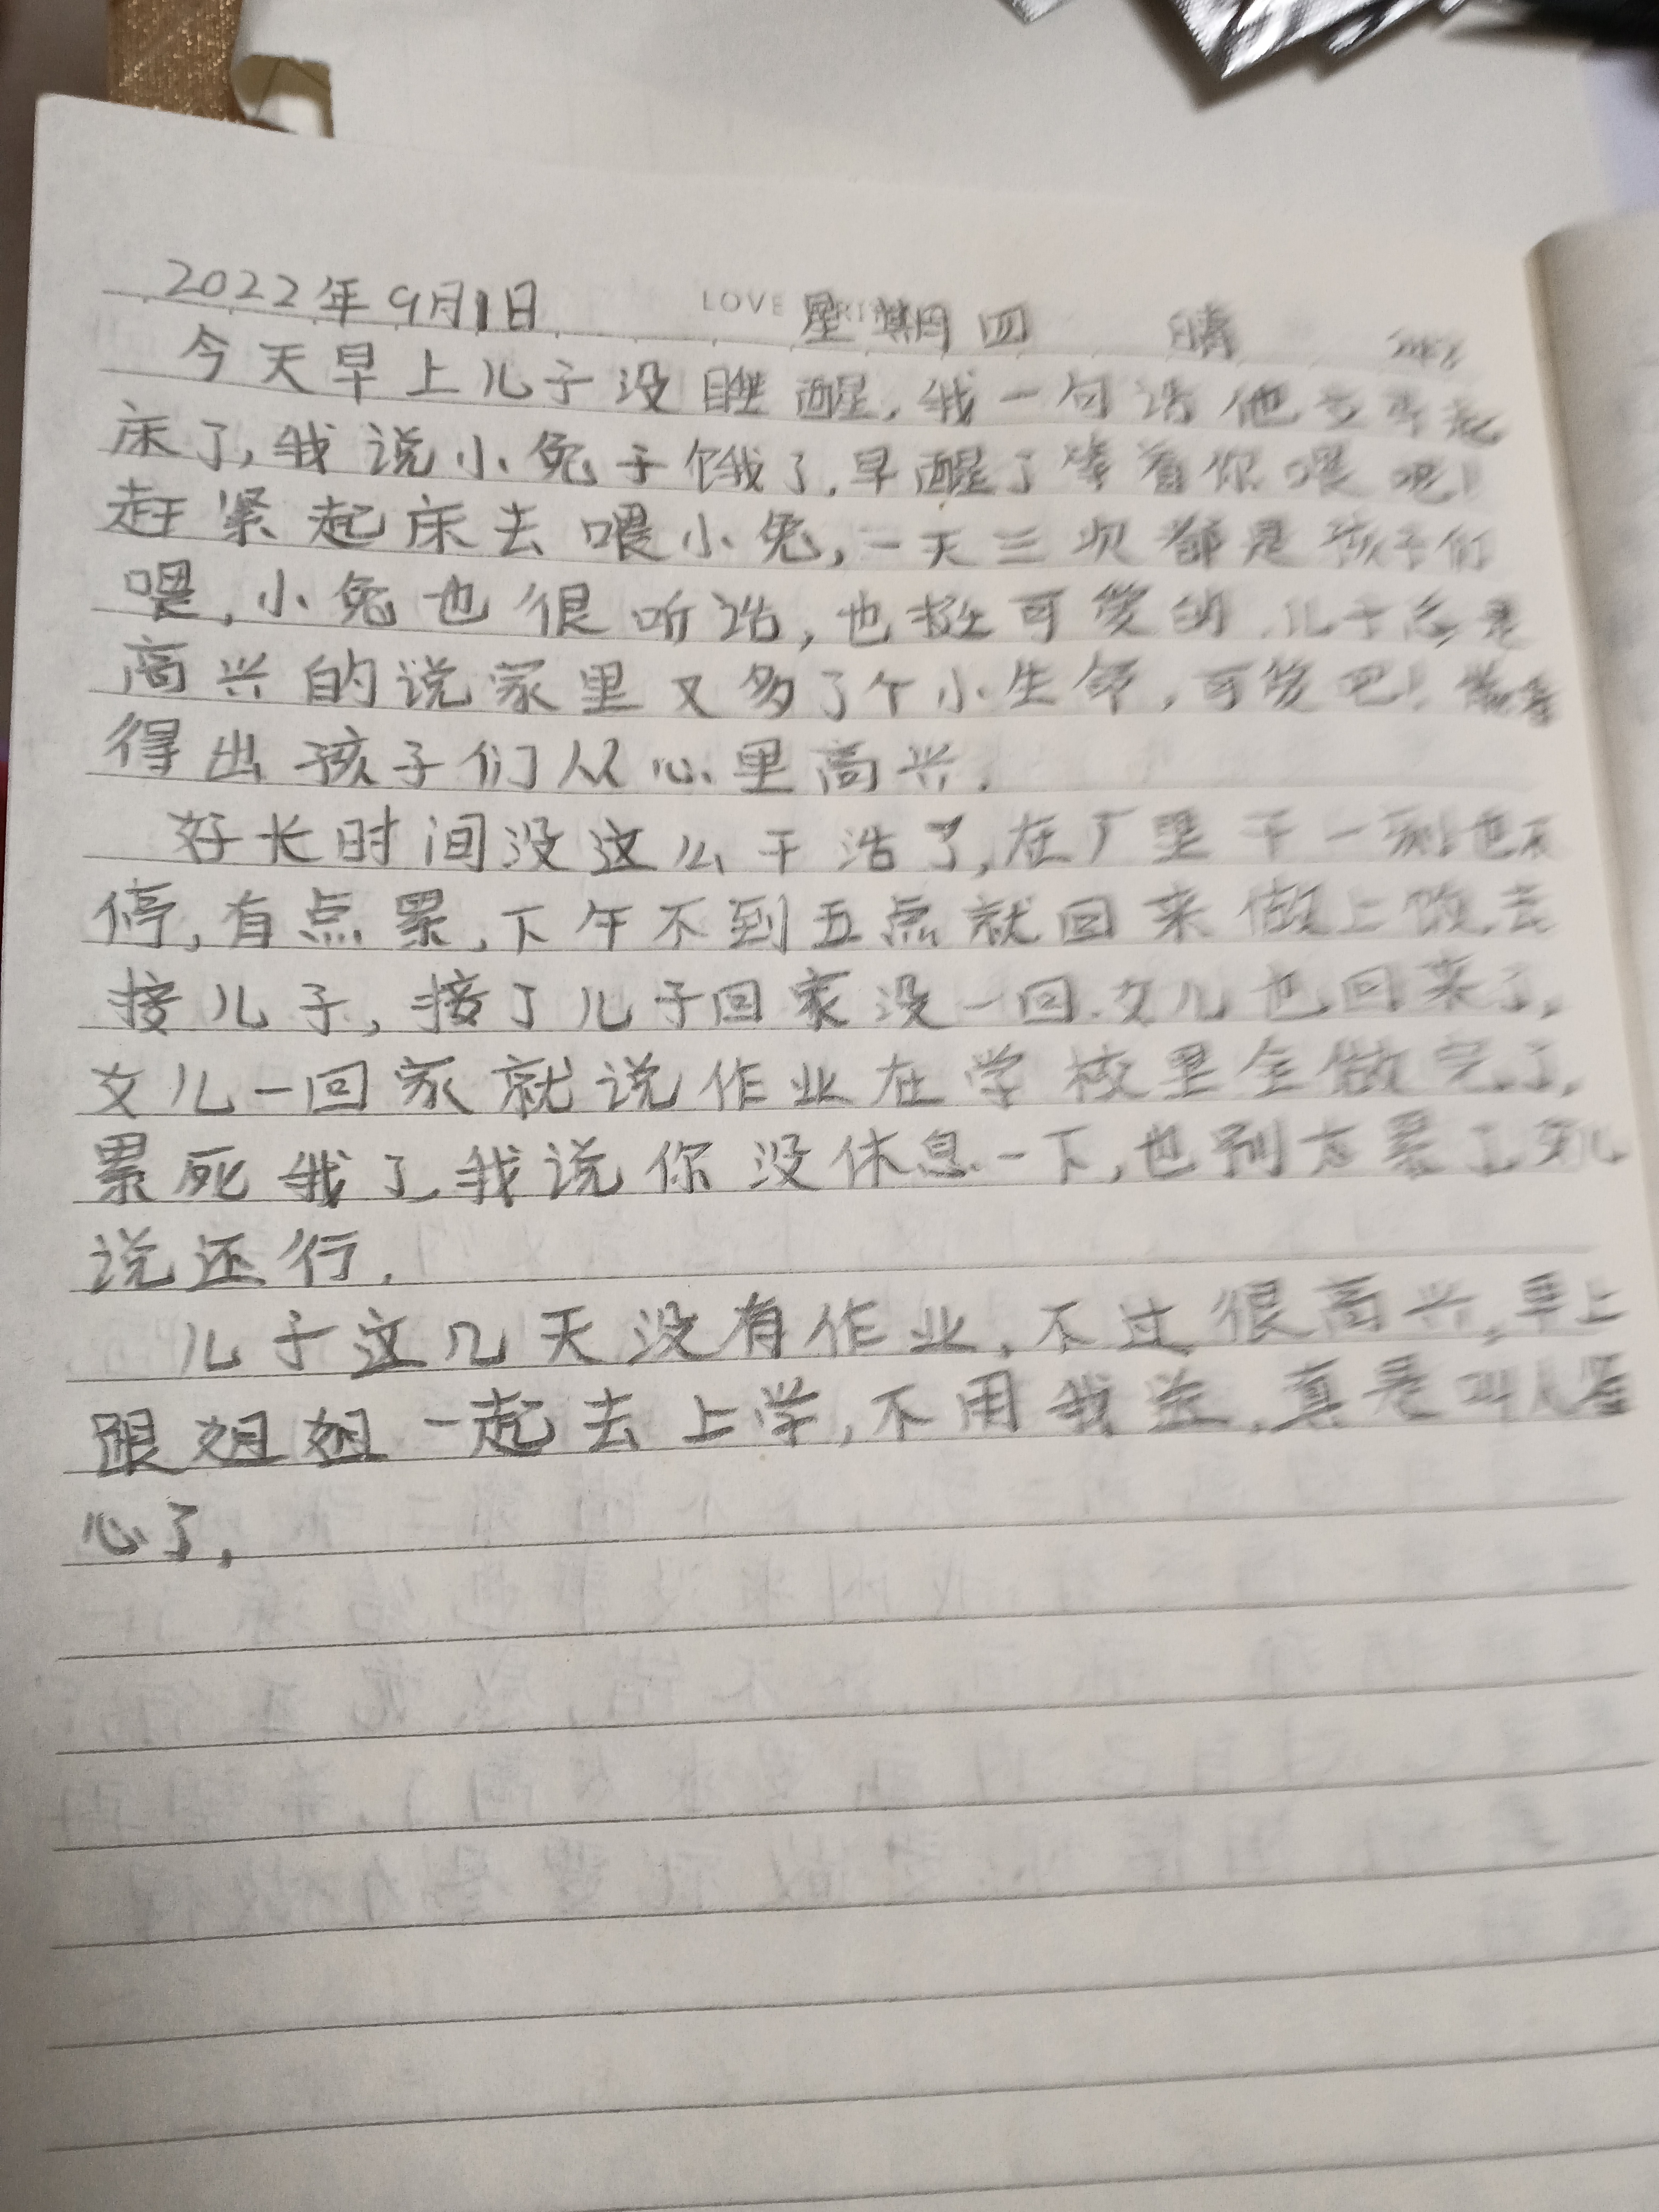 2022年9月1日 LOVE 星期四 晴
今天早上儿子没睡醒,我一句话他立马起
床了,我说小兔子饿了,早醒了等着你喂呢!
赶紧起床去喂小兔,一天三次都是孩子们
喂,小兔也很听话,也挺可爱的.儿子总是
高兴的说家里又多了个小生命,可爱吧!
得出孩子们从心里高兴.
好长时间没这么干活了,在厂里干一刻也不
停,有点累,下午不到五点就回来做上饭,去
接儿子,接了儿子回家没一回.女儿也回来了,
女儿一回家就说作业在学校里全做完了,
累死我了,我说你没休息一下,也别太累了,女儿
说还行.
儿子这几天没有作业,不过很高兴,早上
跟姐姐一起去上学,不用我送,真是叫人省
心了,